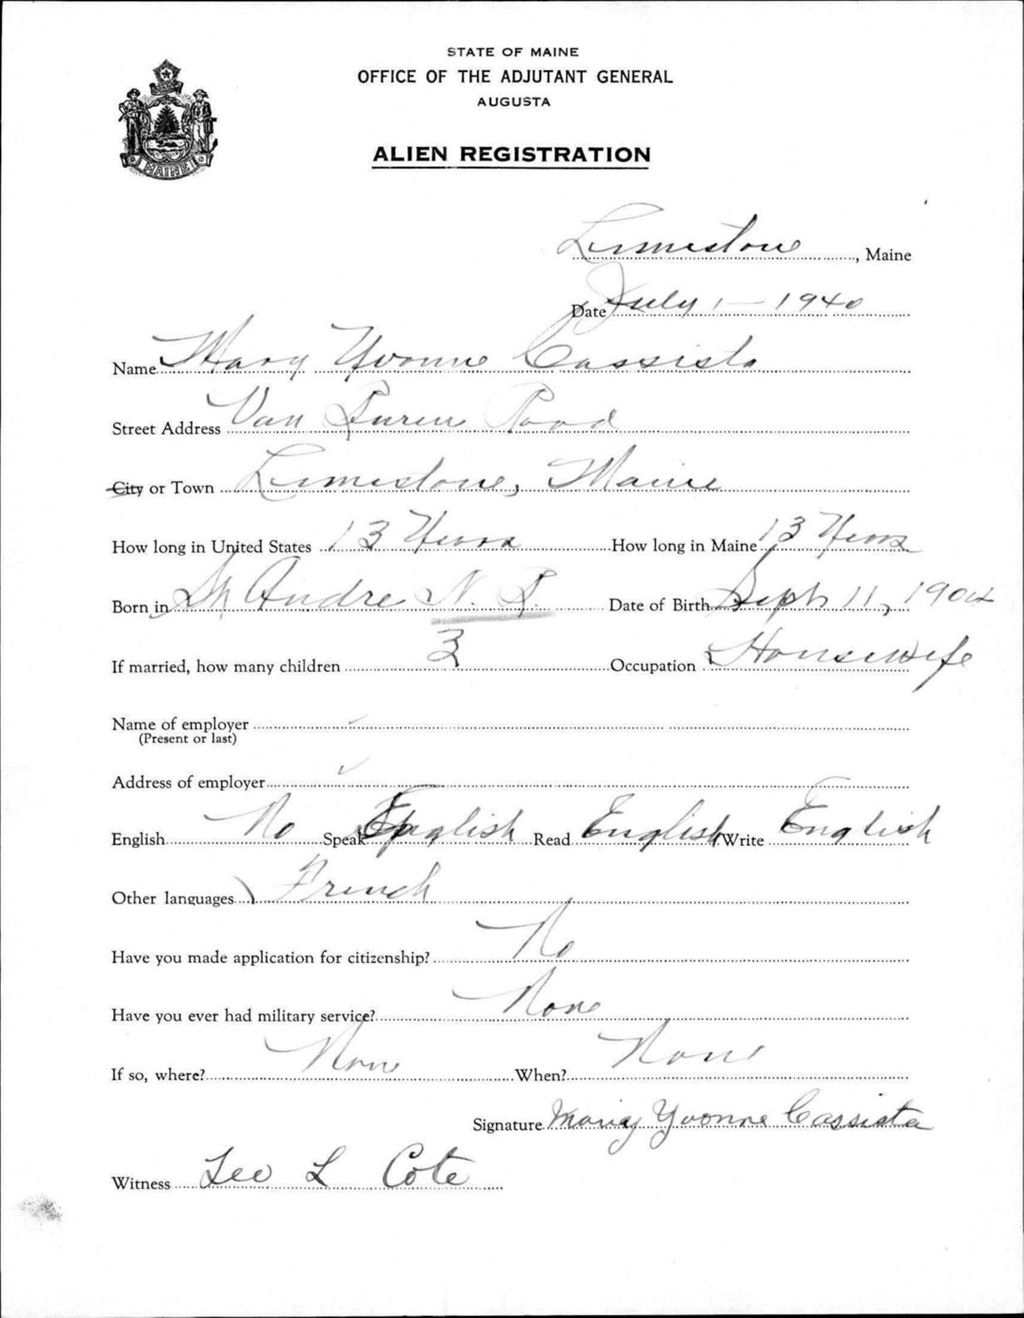 STATE OF MAINE
OFFICE OF THE ADJUTANT GENERAL
AUGUSTA
ALIEN REGISTRATION
MAINE
Limestone, Maine
Date July 1 - 1940
Name Mary Yvonne Cassista
Street Address Van Buren Road
City or Town Limestone, Maine
How long in United States 13 Years How long in Maine 13 Years
Born in St Andre N. B. Date of Birth Sept 11, 1904
If married, how many children 3 Occupation Housewife
Name of employer
(Present or last)
Address of employer
English No Speak English Read English Write English
Other languages French
Have you made application for citizenship? No
Have you ever had military service? None
If so, where? None When? None
Signature Mary Yvonne Cassista
Witness Leo L Cote